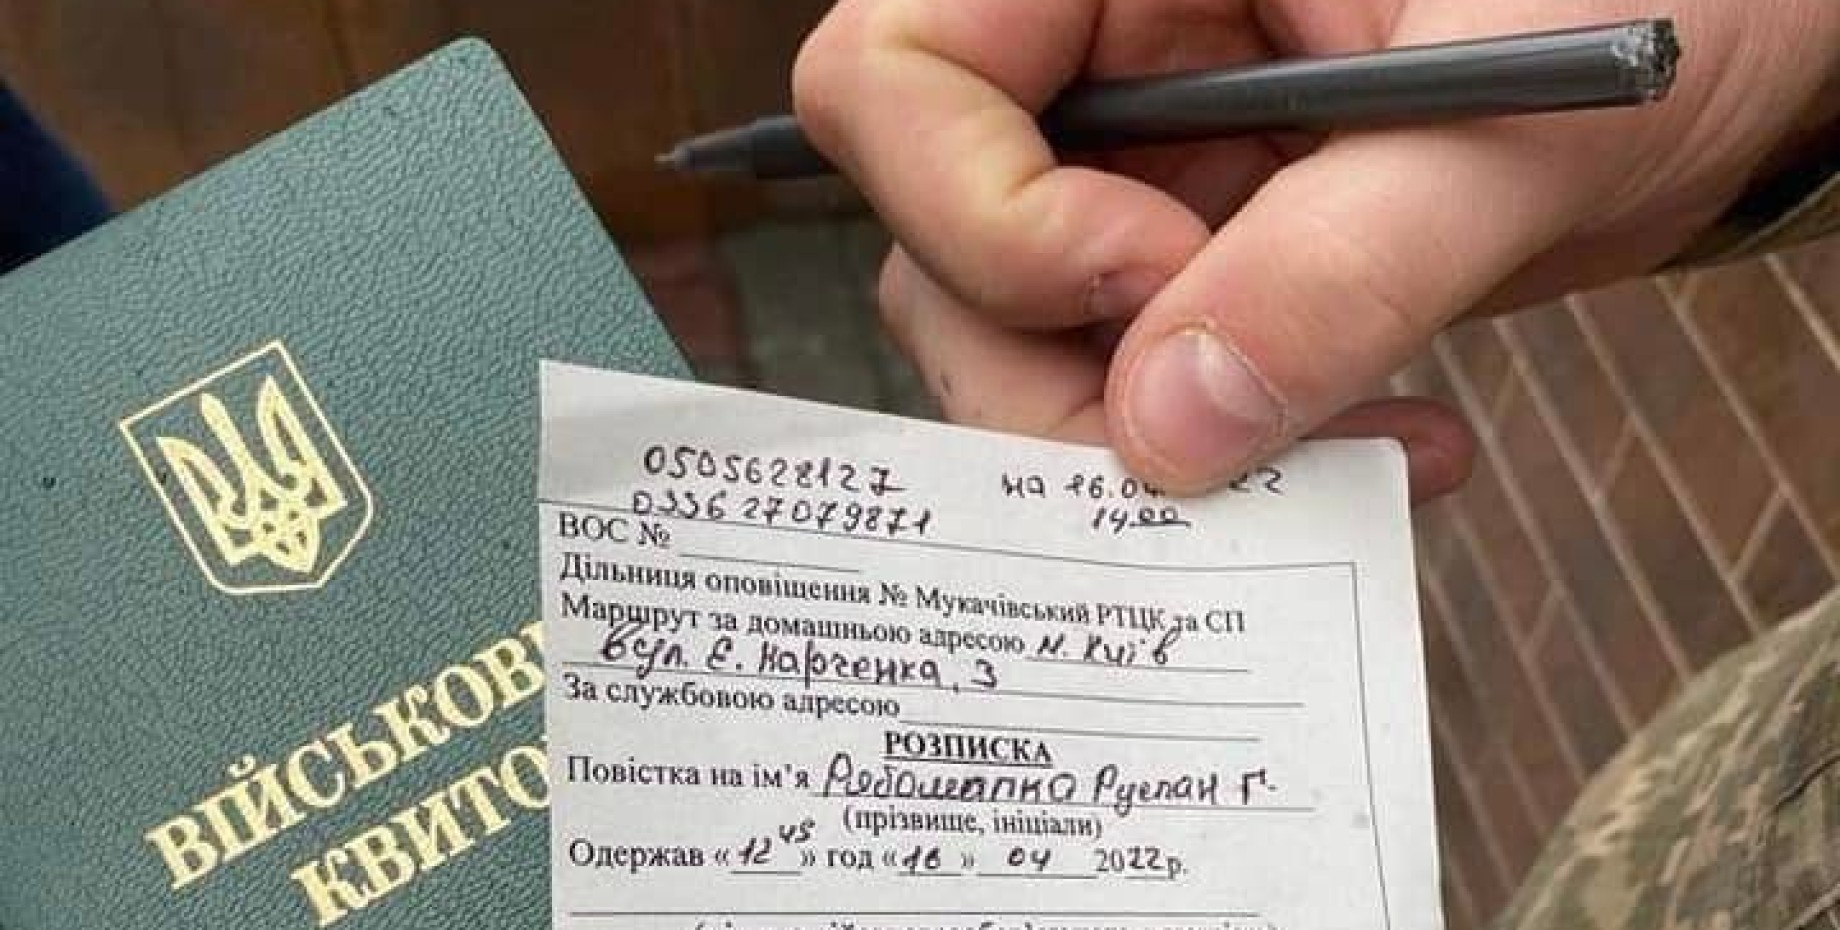 ВІЙСЬКОВ
КВИТО
0505628127
на 16.04 22
033627079871
14 00
ВОС №
Дільниця оповіщення № Мукачівський РТЦК та СП
Маршрут за домашньою адресою м. Київ
вул. Є. Харченка, 3
За службовою адресою
РОЗПИСКА
Повістка на ім'я Руслан Г.
(прізвище, ініціали)
Одержав «12 45» год «16» 04 2022 р.